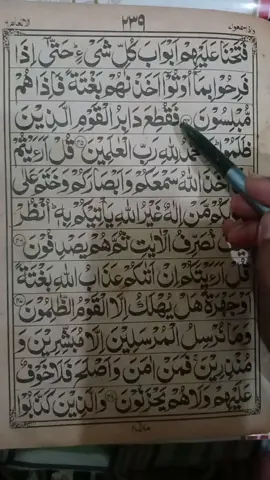 واذا سمعوا ٧
٢٣٩
الانعام ٦
فَتَحْنَا عَلَيْهِمْ اَبْوَابَ كُلِّ شَيْءٍ ؕ حَتّٰۤى اِذَا
فَرِحُوْا بِمَاۤ اُوْتُوْۤا اَخَذْنٰهُمْ بَغْتَةً فَاِذَا هُمْ
مُّبْلِسُوْنَ ﴿۴۴﴾ فَقُطِعَ دَابِرُ الْقَوْمِ الَّذِيْنَ
ظَلَمُوْا ؕ لِلّٰهِ رَبِّ الْعٰلَمِيْنَ ﴿۴۵﴾ قُلْ اَرَءَيْتُمْ
اَخَذَ اللّٰهُ سَمْعَكُمْ وَ اَبْصَارَكُمْ وَ خَتَمَ عَلٰى
مَّنْ اِلٰهٌ غَيْرُ اللّٰهِ يَاْتِيْكُمْ بِهٖ ؕ اُنْظُرْ
نُصَرِّفُ الْاٰيٰتِ ثُمَّ هُمْ يَصْدِفُوْنَ ﴿۴۶﴾
قُلْ اَرَءَيْتَكُمْ اِنْ اَتٰىكُمْ عَذَابُ اللّٰهِ بَغْتَةً
اَوْ جَهْرَةً هَلْ يُهْلَكُ اِلَّا الْقَوْمُ الظّٰلِمُوْنَ ﴿۴۷﴾
وَ مَا نُرْسِلُ الْمُرْسَلِيْنَ اِلَّا مُبَشِّرِيْنَ وَ
مُنْذِرِيْنَ ۚ فَمَنْ اٰمَنَ وَ اَصْلَحَ فَلَا خَوْفٌ
عَلَيْهِمْ وَ لَا هُمْ يَحْزَنُوْنَ ﴿۴۸﴾ وَ الَّذِيْنَ كَذَّبُوْا